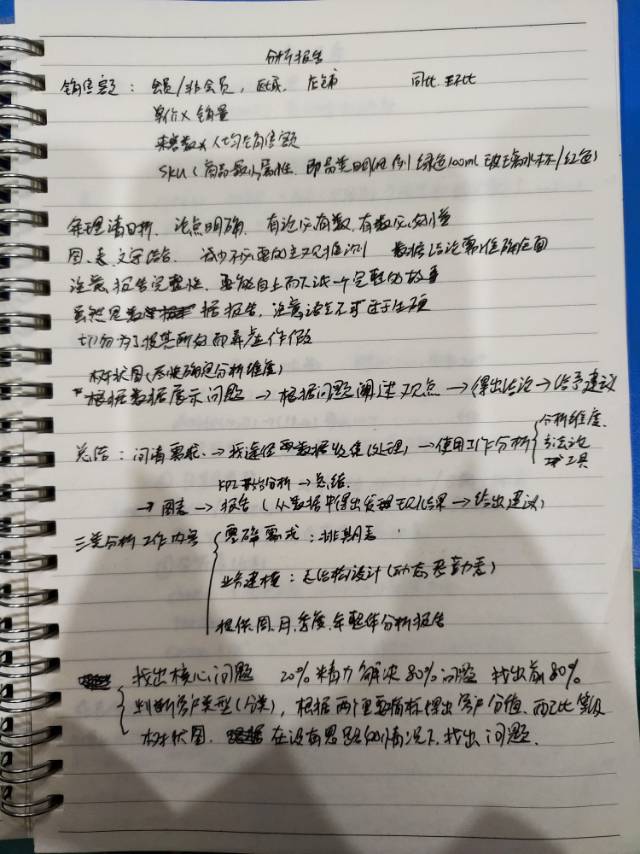 分析报告
销售额：会员/非会员，区域，店铺 同比、环比
单价×销量
来客数×人均销售额
SKU（商品最小属性，即品类明细 例 绿色100ml玻璃水杯/红色）
条理清晰，论点明确，有论必有数，有数必
图、表、文字结合，减少不必要的主观推测 数据结论需准确全面
注意报告完整性，要能自上而下说一个完整的故事
虽然是数据报告，注意语言不可过于生硬
切勿为了投其所好而弄虚作假
树状图（尽快确定分析维度）
*根据数据展示问题→根据问题阐述观点→得出结论→给予建议
分析维度
总结：问清需求→找途径 数据收集（处理）→使用工作分析 方法论
工具
KPI开始分析→总结
→图表→报告（从数据中得出发现 结果→给出建议）
三类分析工作内容 零碎需求：排期表
业务建模：表结构设计（动态考勤表）
提供周、月、季度、年整体分析报告
找出核心问题 20%精力解决80%问题 找出前80%
判断客户类型（分类），根据两个重要指标得出客户分值，而 等级
树状图，在没有思路的情况下，找出问题.